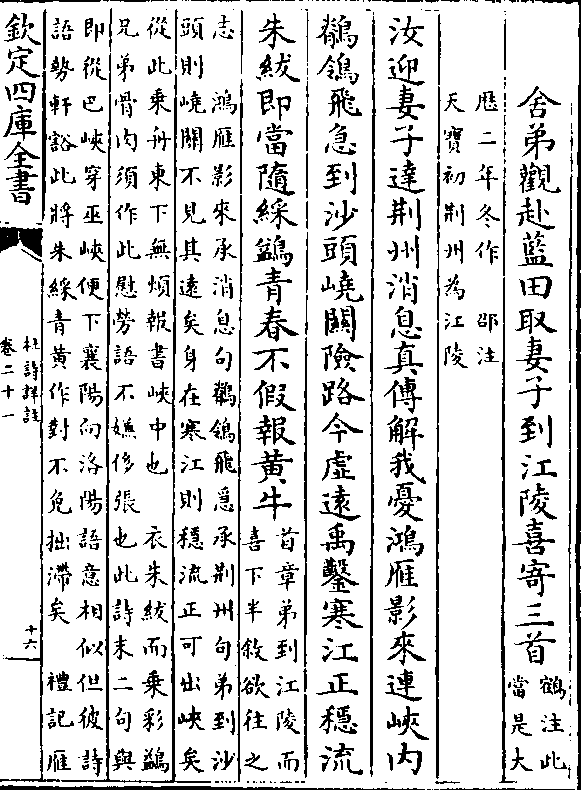 舍弟觀赴藍田取妻子到江陵喜寄三首鶴注此
當是大
厯二年冬作　邵注
天寳初荆州為江陵
汝迎妻子達荆州消息真傳解我憂鴻雁影來連峽内
鶺鴒飛急到沙頭嶢關險路今虛遠禹鑿寒江正穩流
朱紱即當隨綵鷁青春不假報黄牛首章弟到江陵而
喜下半敘欲往之
志　鴻雁影來承消息句鶺鴒飛急承荆州句弟到沙
頭則嶢關不見其遠矣身在寒江則穩流正可出峽矣
從此乘舟東下無煩報書峽中也　衣朱紱而乘彩鷁
兄弟骨肉須作此慰勞語不嫌侈張也此詩末二句與
即從巴峽穿巫峽便下襄陽向洛陽語意相似但彼詩
語勢軒豁此將朱綵青黄作對不免拙滯矣　禮記雁
欽定四庫全書
杜詩詳註
卷二十一
十六